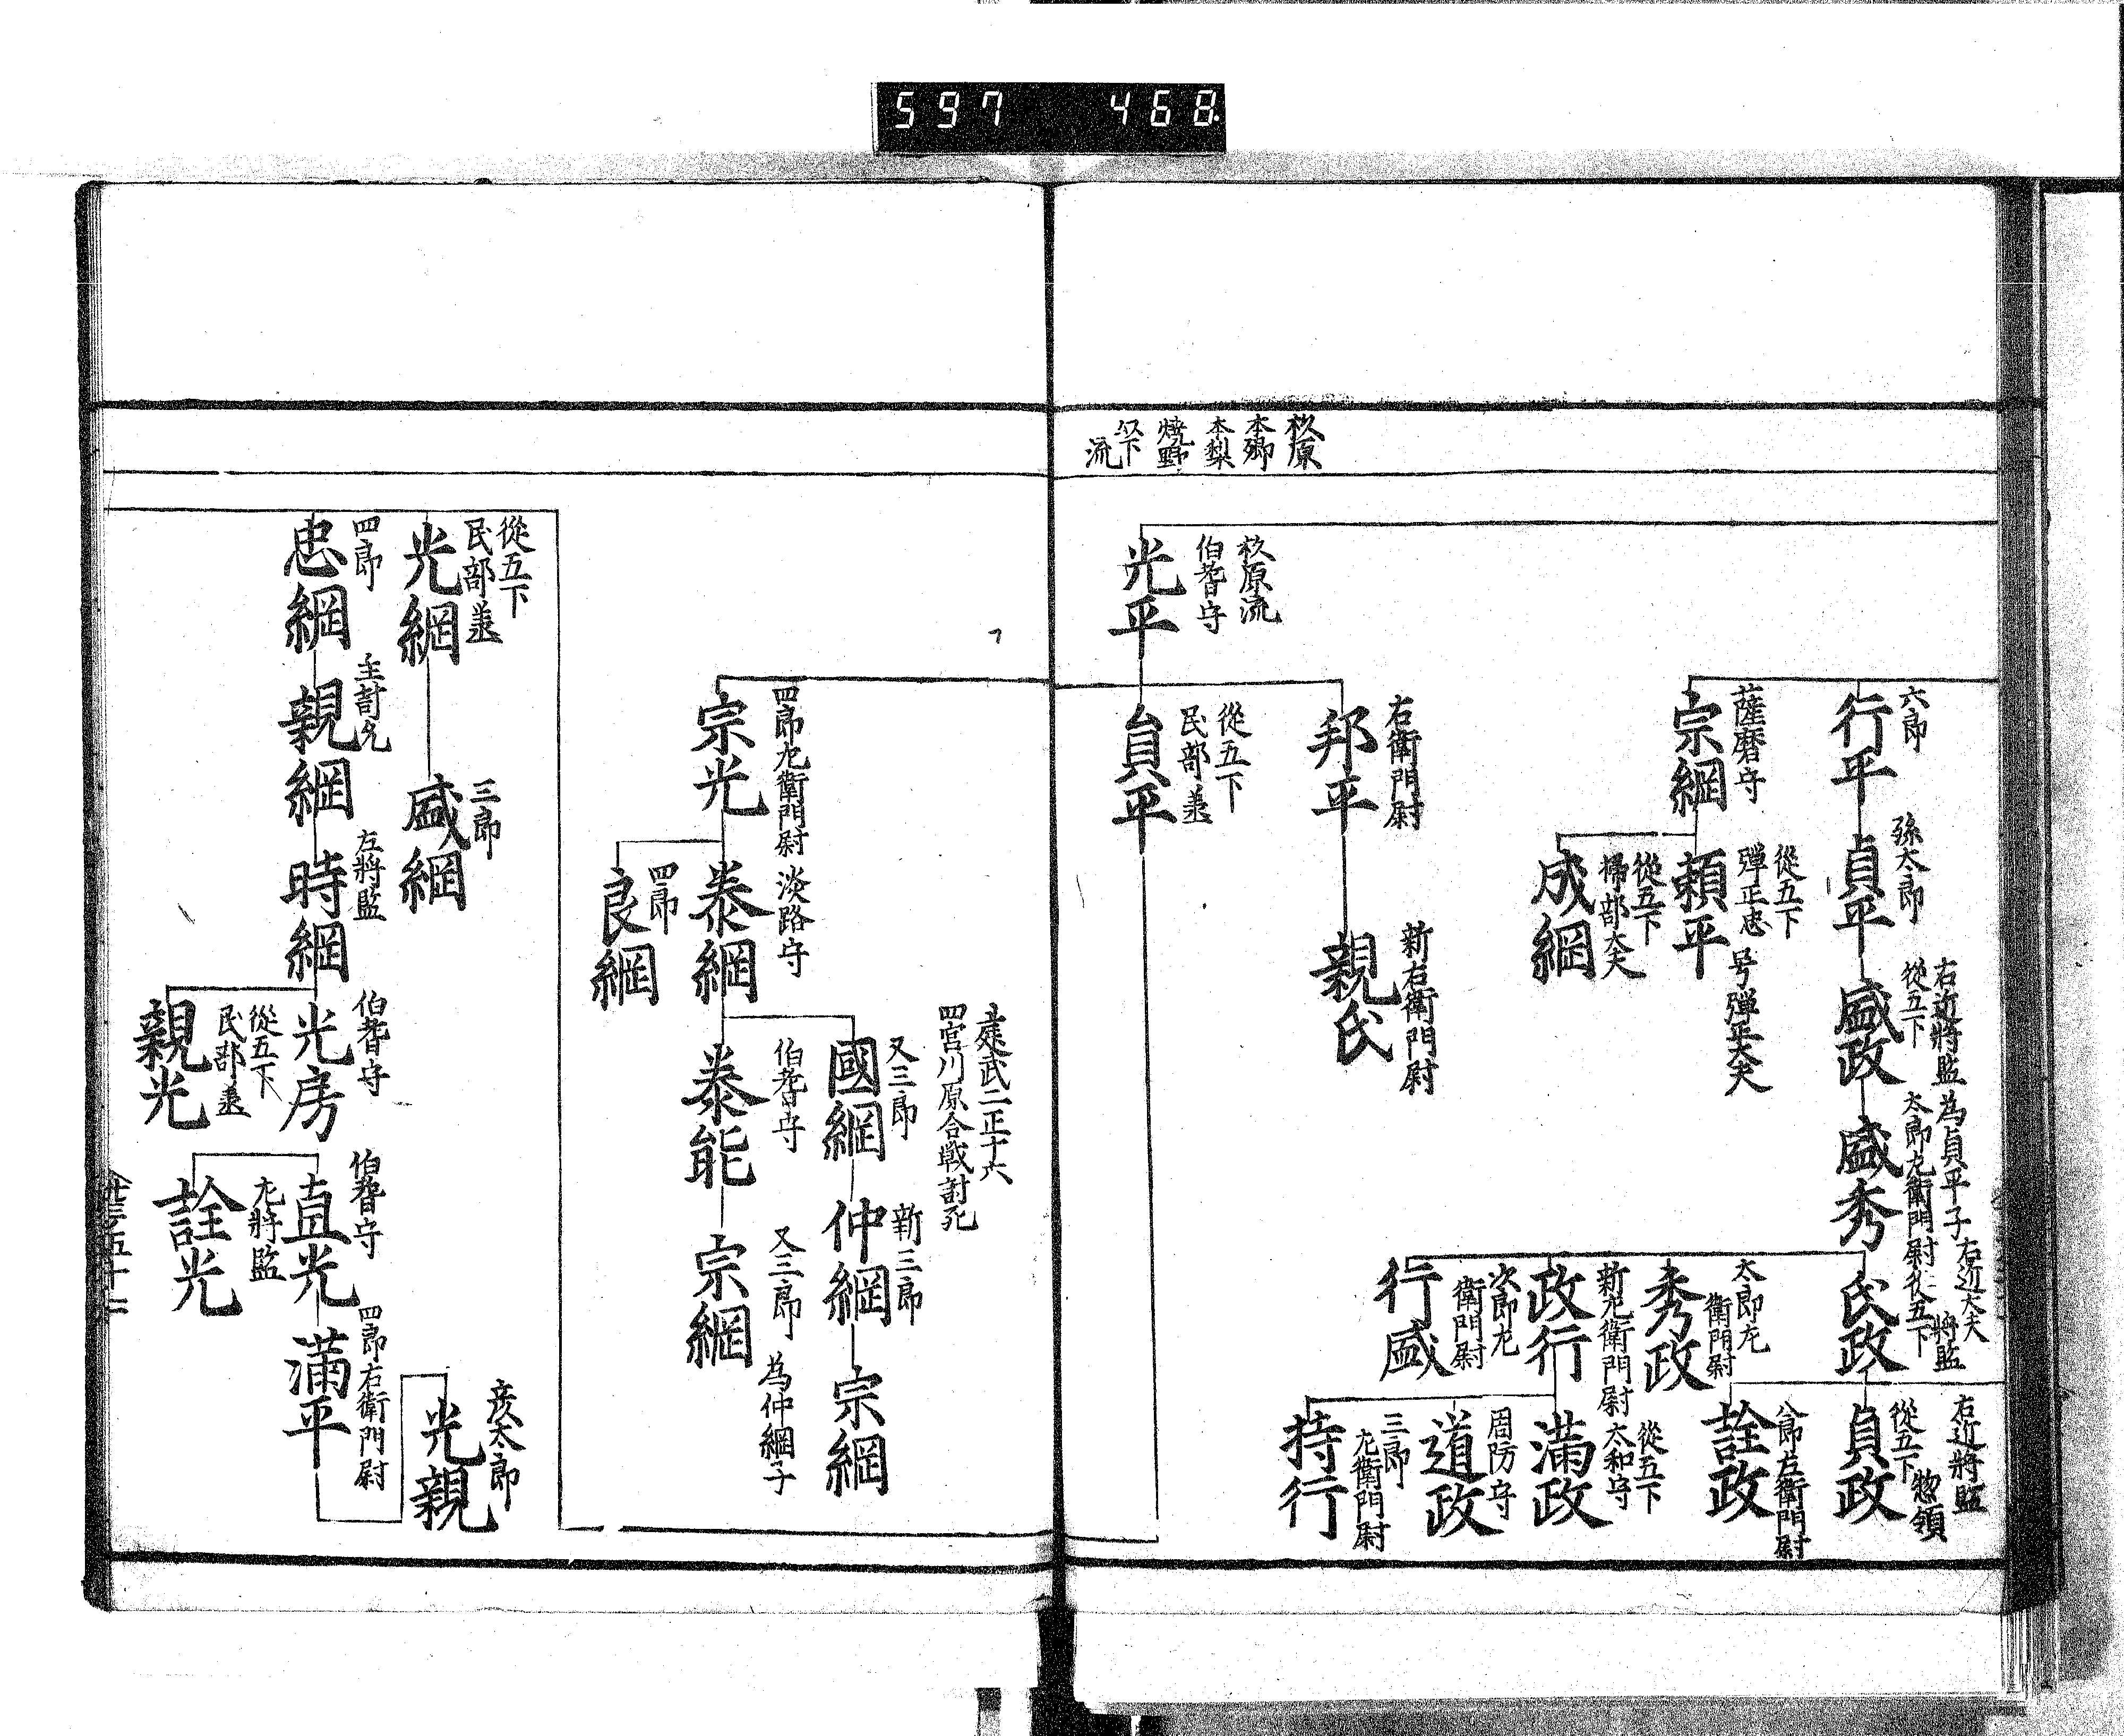 597 468
杦原
本郷
本梨
焼野
以下
流
六郎
行平
孫太郎
貞平
右近將監 為貞平子
從五下
盛政
太郎左衛門尉從五下
盛秀
右近大夫
將監
氏政
右近將監
從五下
惣領
貞政
八郎左衛門尉
詮政
太郎左
衛門尉
秀政
新左衛門尉
政行
從五下
大和守
満政
周防守
道政
三郎
左衛門尉
持行
次郎左
衛門尉
行盛
薩磨守
宗綱
從五下
弾正忠 号弾正大夫
頼平
從五下
掃部大夫
成綱
右衛門尉
邦平
新右衛門尉
親氏
杦原流
伯耆守
光平
從五下
民部丞
員平
四郎左衛門尉
宗光
淡路守
泰綱
四郎
良綱
建武二正十六
四宮川原合戦討死
又三郎
國綱
新三郎
仲綱
宗綱
伯耆守
泰能
又三郎 為仲綱子
宗綱
從五下
民部丞
光綱
三郎
盛綱
四郎
忠綱
主計允
親綱
左將監
時綱
伯耆守
光房
從五下
民部丞
親光
伯耆守
直光
左將監
詮光
四郎右衛門尉
満平
彦太郎
光親